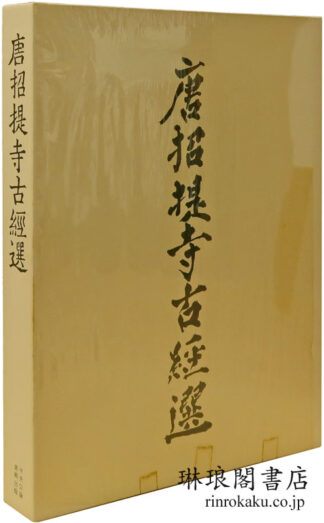 唐招提寺古經選
唐招提寺古經選
中央公論
美術出版
琳琅閣書店
rinrokaku.co.jp